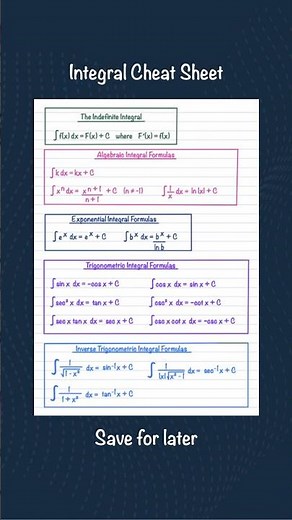 Integral Cheat Sheet
The Indefinite Integral
∫f(x) dx = F(x) + C where F'(x) = f(x)
Algebraic Integral Formulas
∫k dx = kx + C
∫xⁿ dx = xⁿ⁺¹/n+1 + C (n ≠ -1) ∫1/x dx = ln |x| + C
Exponential Integral Formulas
∫eˣ dx = eˣ + C ∫bˣ dx = bˣ/ln b + C
Trigonometric Integral Formulas
∫sin x dx = -cos x + C ∫cos x dx = sin x + C
∫sec² x dx = tan x + C ∫csc² x dx = -cot x + C
∫sec x tan x dx = sec x + C ∫csc x cot x dx = -csc x + C
Inverse Trigonometric Integral Formulas
∫1/√1 - x² dx = sin⁻¹x + C ∫1/|x|√x² - 1 dx = sec⁻¹x + C
∫1/1 + x² dx = tan⁻¹x + C
Save for later